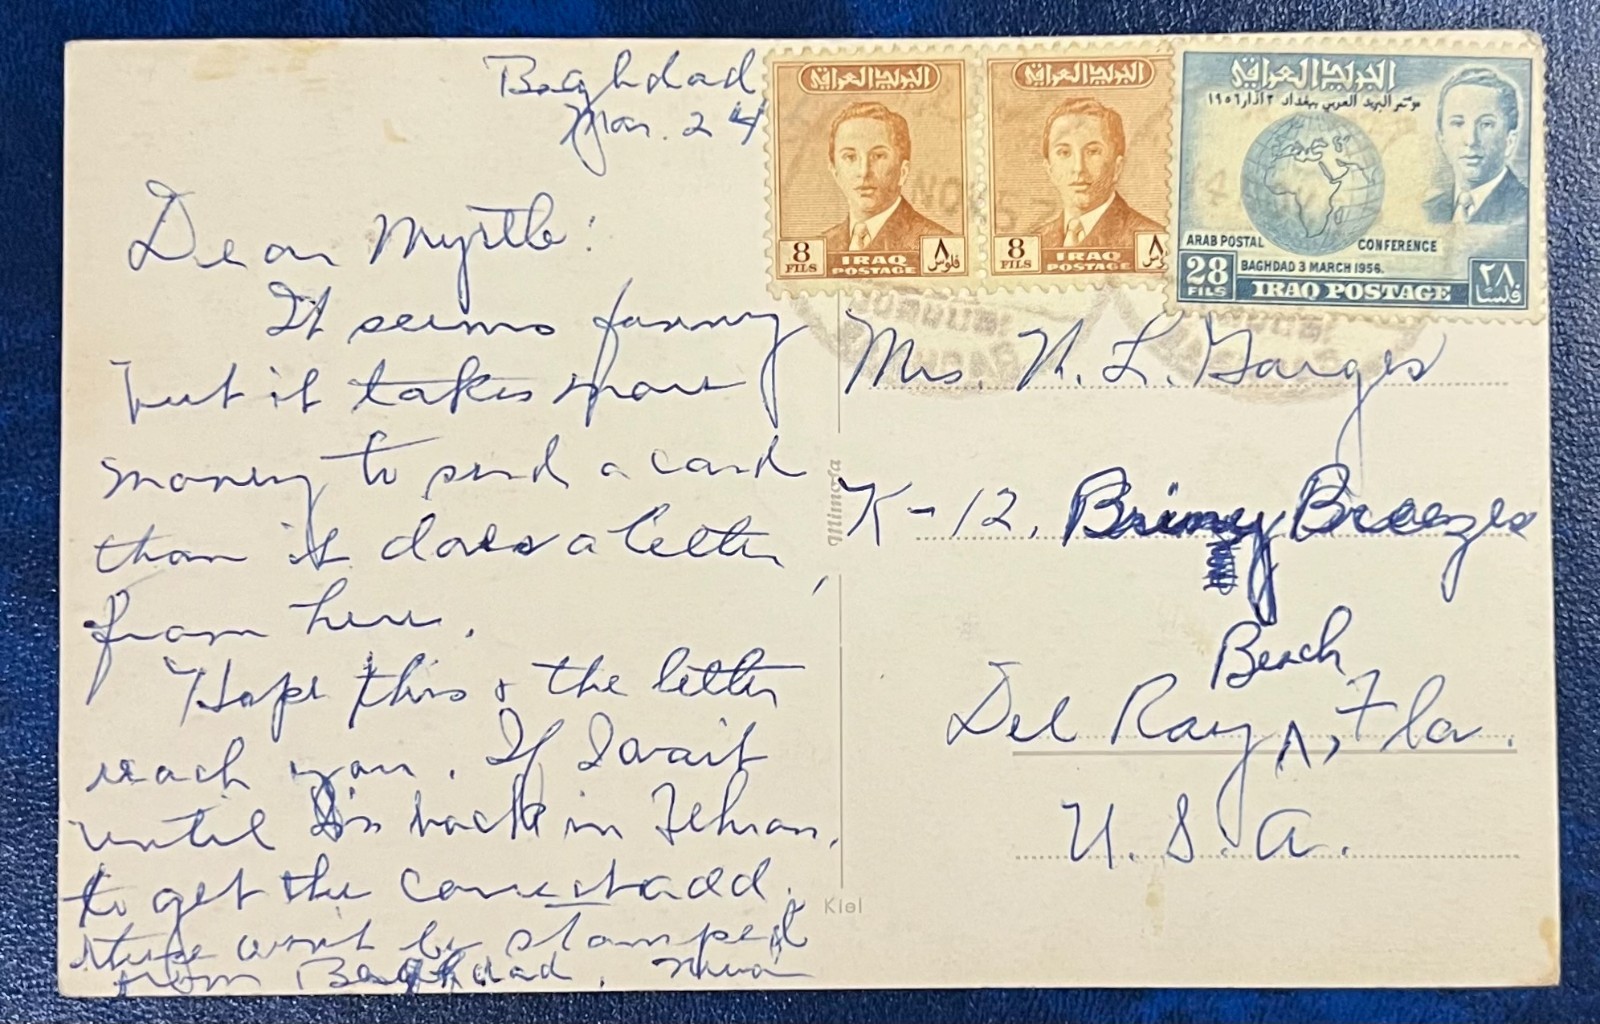 Baghdad
Mar. 24
Dear Myrtle:
It seems funny
but it takes more
money to send a card
than it does a letter
from here.
Hope this & the letter
reach you. If I wait
until I'm back in Tehran,
to get the correct add.
these won't be stamped
from Baghdad.
البريد العراقي
8
FILS
IRAQ
POSTAGE
٨
فلوس
البريد العراقي
8
FILS
IRAQ
POSTAGE
٨
فلوس
البريد العراقي
مؤتمر البريد العربي ببغداد ٣ آذار ١٩٥٦
ARAB POSTAL CONFERENCE
BAGHDAD 3 MARCH 1956.
28
FILS
IRAQ POSTAGE
٢٨
فلسا
NOV 57
Mrs. N. L. Garges
K-12, Briny Breezes
Beach
Del Ray ^, Fla.
U.S.A.
Mimosa
Kiel